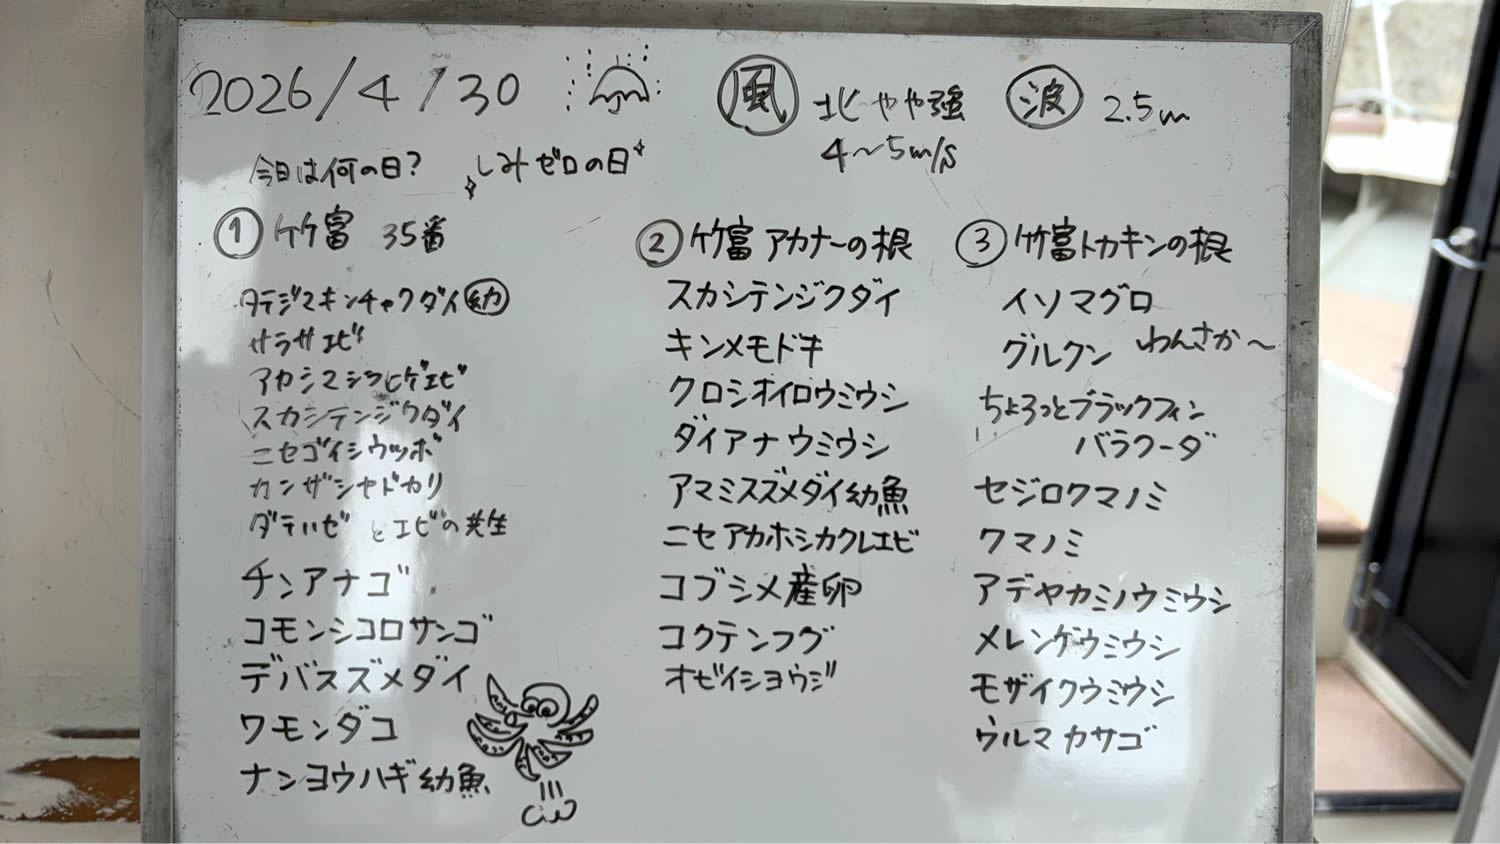 2026/4/30
風 北 やや強
4～5m/s
波 2.5m
今日は何の日? しみゼロの日
① 竹富 35番
タテジマキンチャクダイ 幼
サラサエビ
アカシマシラヒゲエビ
スカシテンジクダイ
ニセゴイシウツボ
カンザシヤドカリ
ダテハゼ とエビの共生
チンアナゴ
コモンシコロサンゴ
デバスズメダイ
ワモンダコ
ナンヨウハギ幼魚
② 竹富 アカナーの根
スカシテンジクダイ
キンメモドキ
クロシオイロウミウシ
ダイアナウミウシ
アマミスズメダイ幼魚
ニセアカホシカクレエビ
コブシメ産卵
コクテンフグ
オビイシヨウジ
③ 竹富トカキンの根
イソマグロ
グルクン わんさか～
ちょろっとブラックフィン
バラクーダ
セジロクマノミ
クマノミ
アデヤカミノウミウシ
メレンゲウミウシ
モザイクウミウシ
ウルマカサゴ